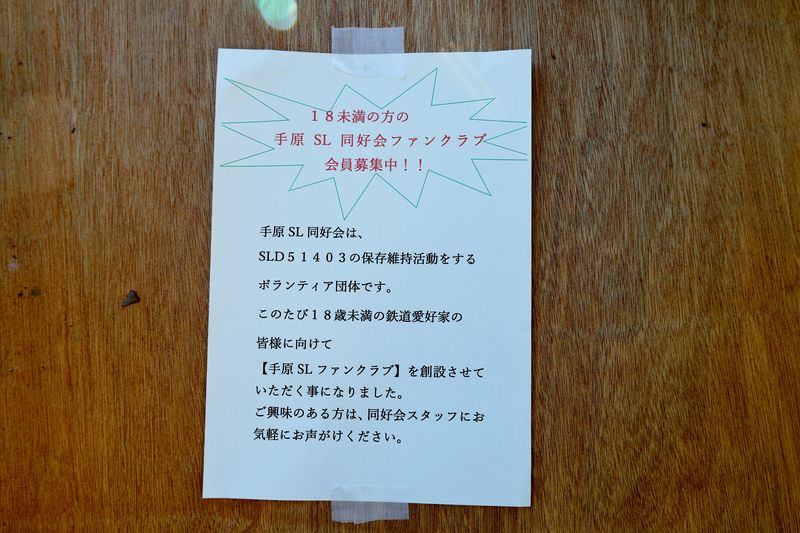 １８未満の方の
手原 SL 同好会ファンクラブ
会員募集中！！
手原 SL 同好会は、
SLD５１４０３の保存維持活動をする
ボランティア団体です。
このたび１８歳未満の鉄道愛好家の
皆様に向けて
【手原 SL ファンクラブ】を創設させて
いただく事になりました。
ご興味のある方は、同好会スタッフにお
気軽にお声がけください。